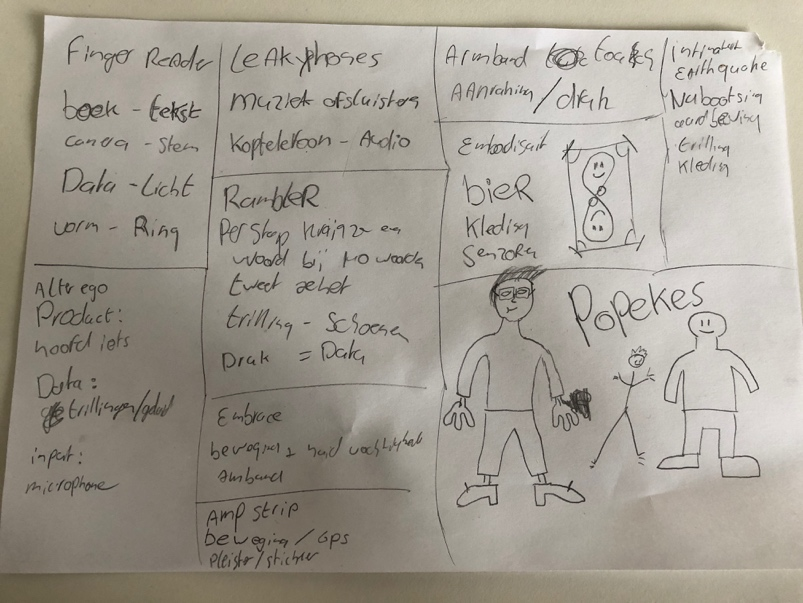 Finger Reader
boek - tekst
camera - stem
Data - Licht
vorm - Ring
Alter ego
Product:
hoofd iets
Data:
trillingen/geluid
input:
microphone
Leakyphones
muziek afluisteren
Koptelefoon - Audio
RambleR
Per stap krijg je een
woord bij
tweet
trilling - Schoenen
Druk = Data
Embrace
beweging
armband
Amp strip
beweging / GPS
pleister / sticker
Armband
Aanraking / druk
bieR
Kleding
Senzoren
Earthquake
Nabootsing
aardbeving
trilling
Kleding
Popekes